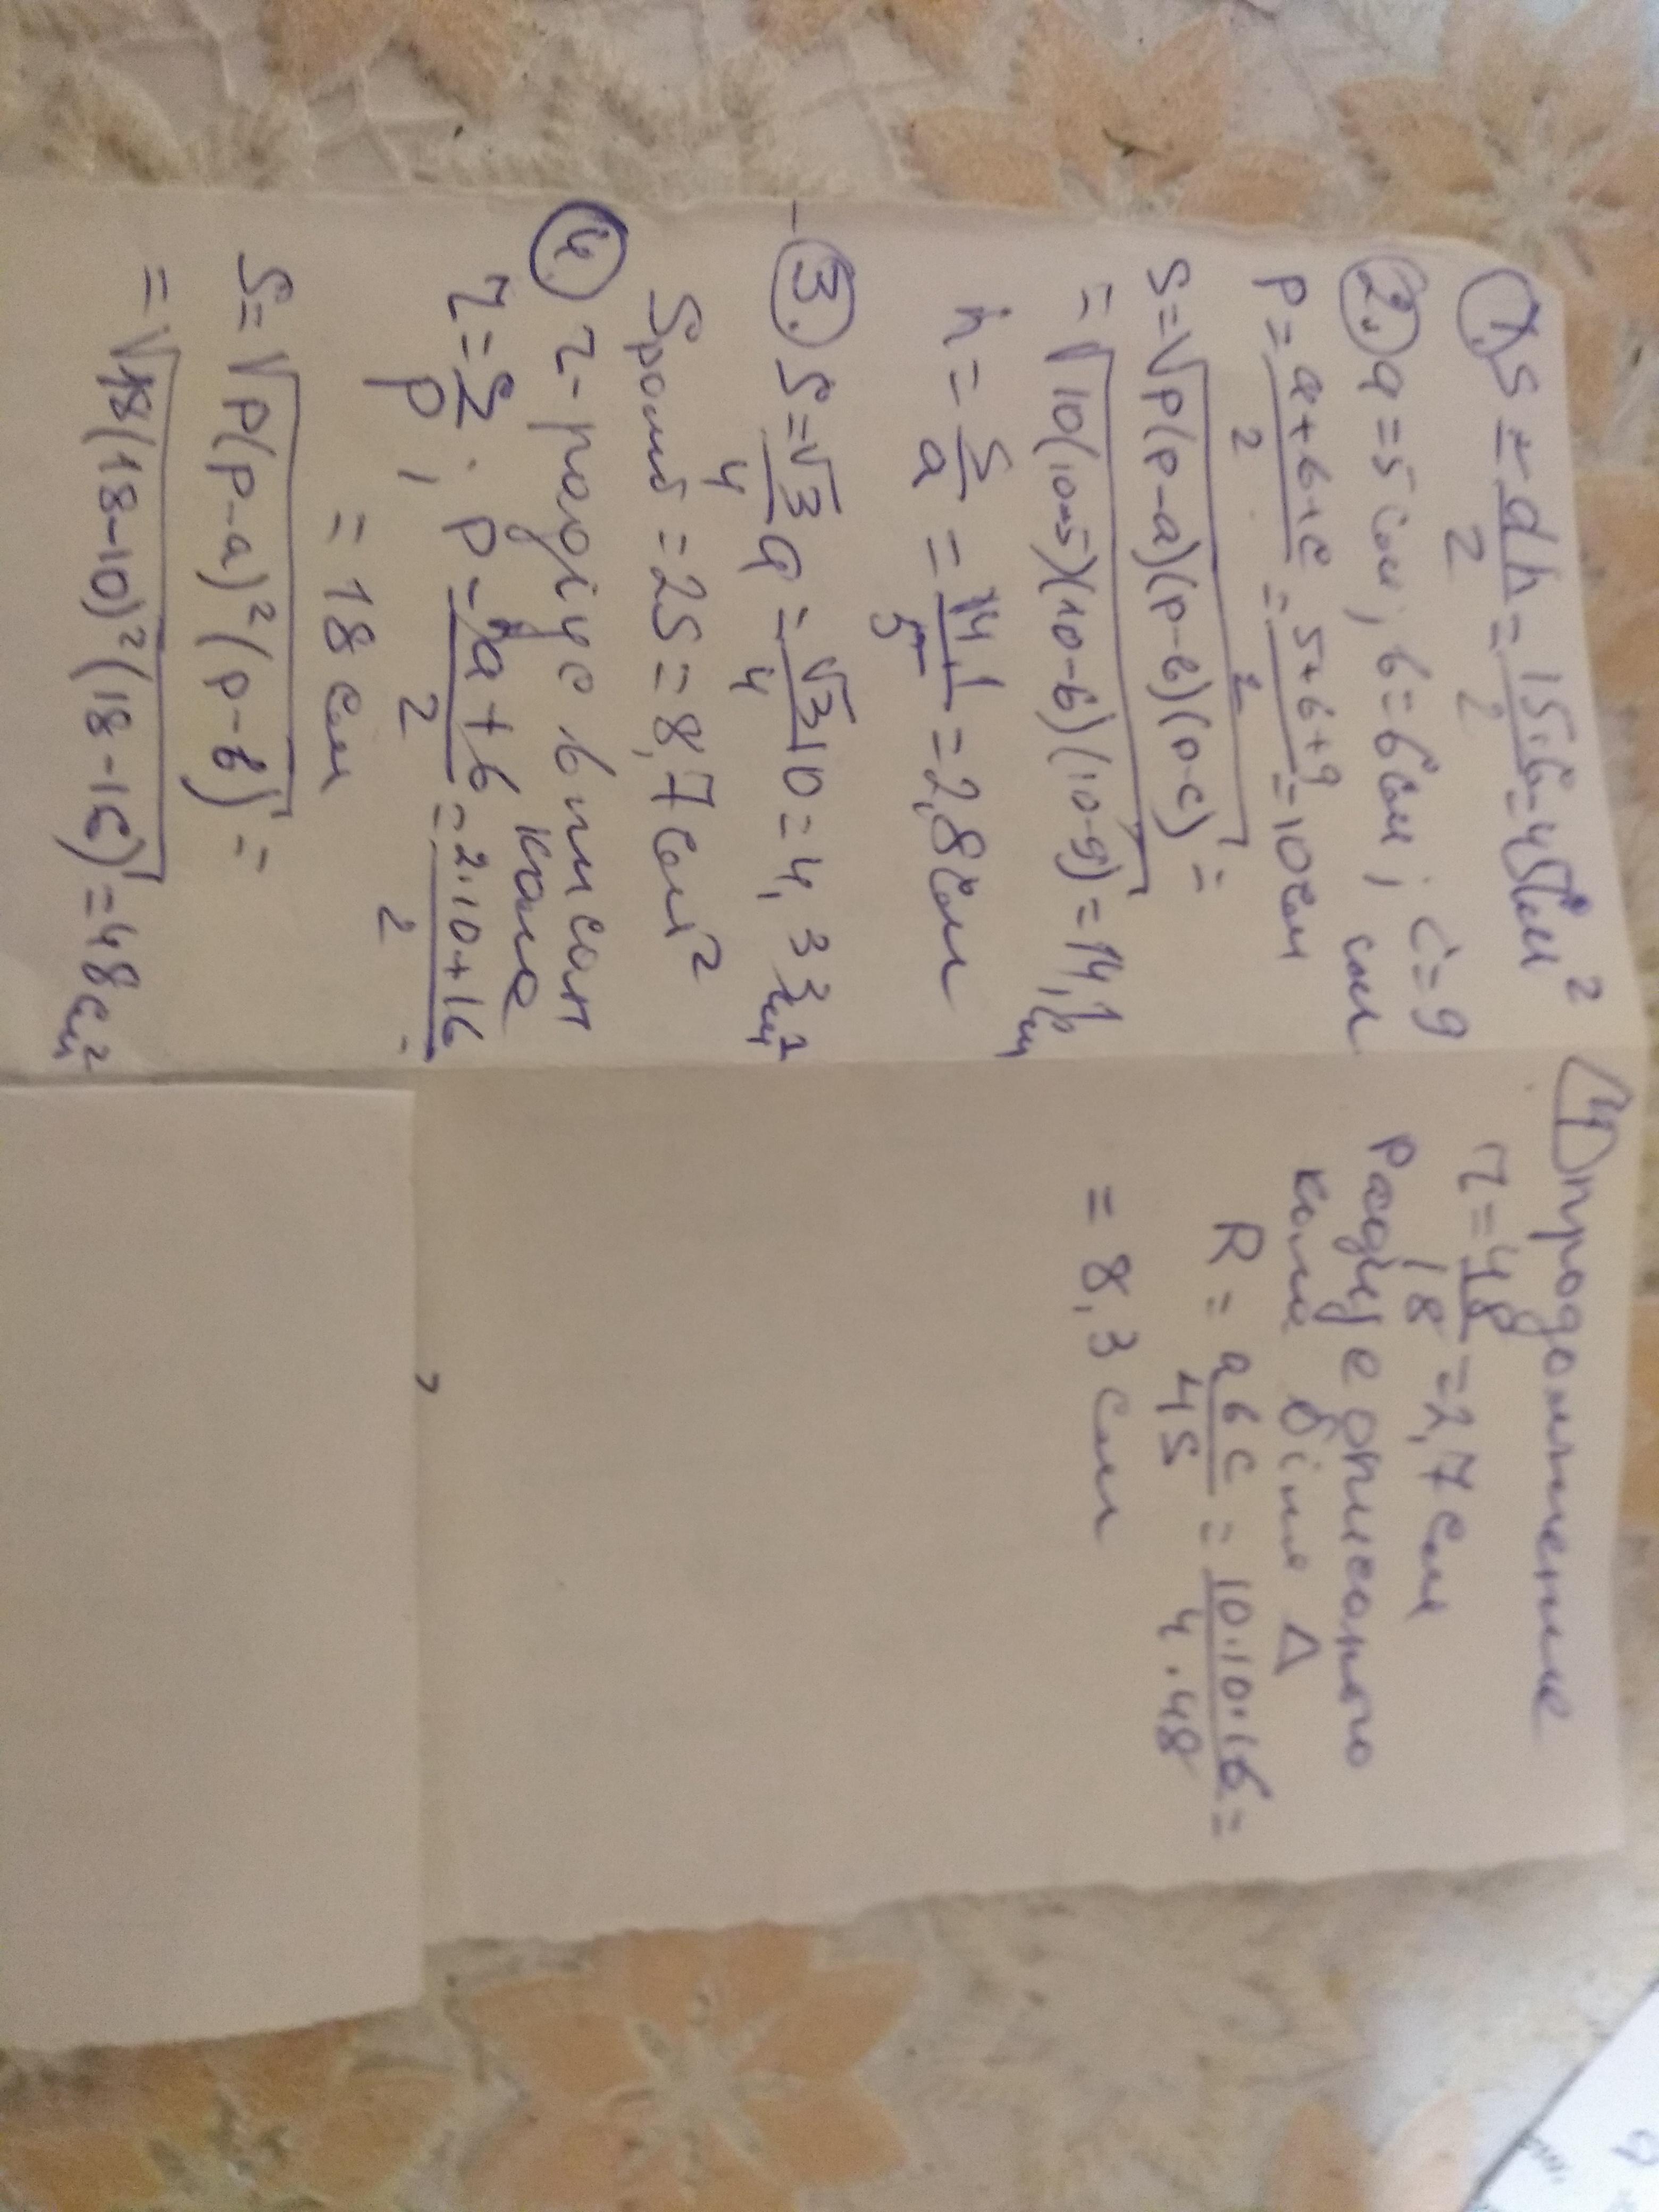 1. S = dh/2 = 15·6/2 = 45 см²
2. a = 5 см; b = 6 см; c = 9 см
P = a+b+c/2 = 5+6+9/2 = 10 см
S = √p(p-a)(p-b)(p-c) =
= √10(10-5)(10-6)(10-9) = 14,1 см
h = S/a = 14,1/5 = 2,8 см
3. S = √3/4 a = √3/4 10 = 4,33 см²
Sромб = 2S = 8,7 см²
4. r - радіус вписан
кола
r = S/p; P = 2a+b/2 = 2·10+16/2 =
= 18 см
S = √p(p-a)²(p-b) =
= √18(18-10)²(18-16) = 48 см²
4 продолжение
r = 48/18 = 2,7 см
Радіус описаного
кола біля Δ
R = abc/4S = 10·10·16/4·48 =
= 8,3 см